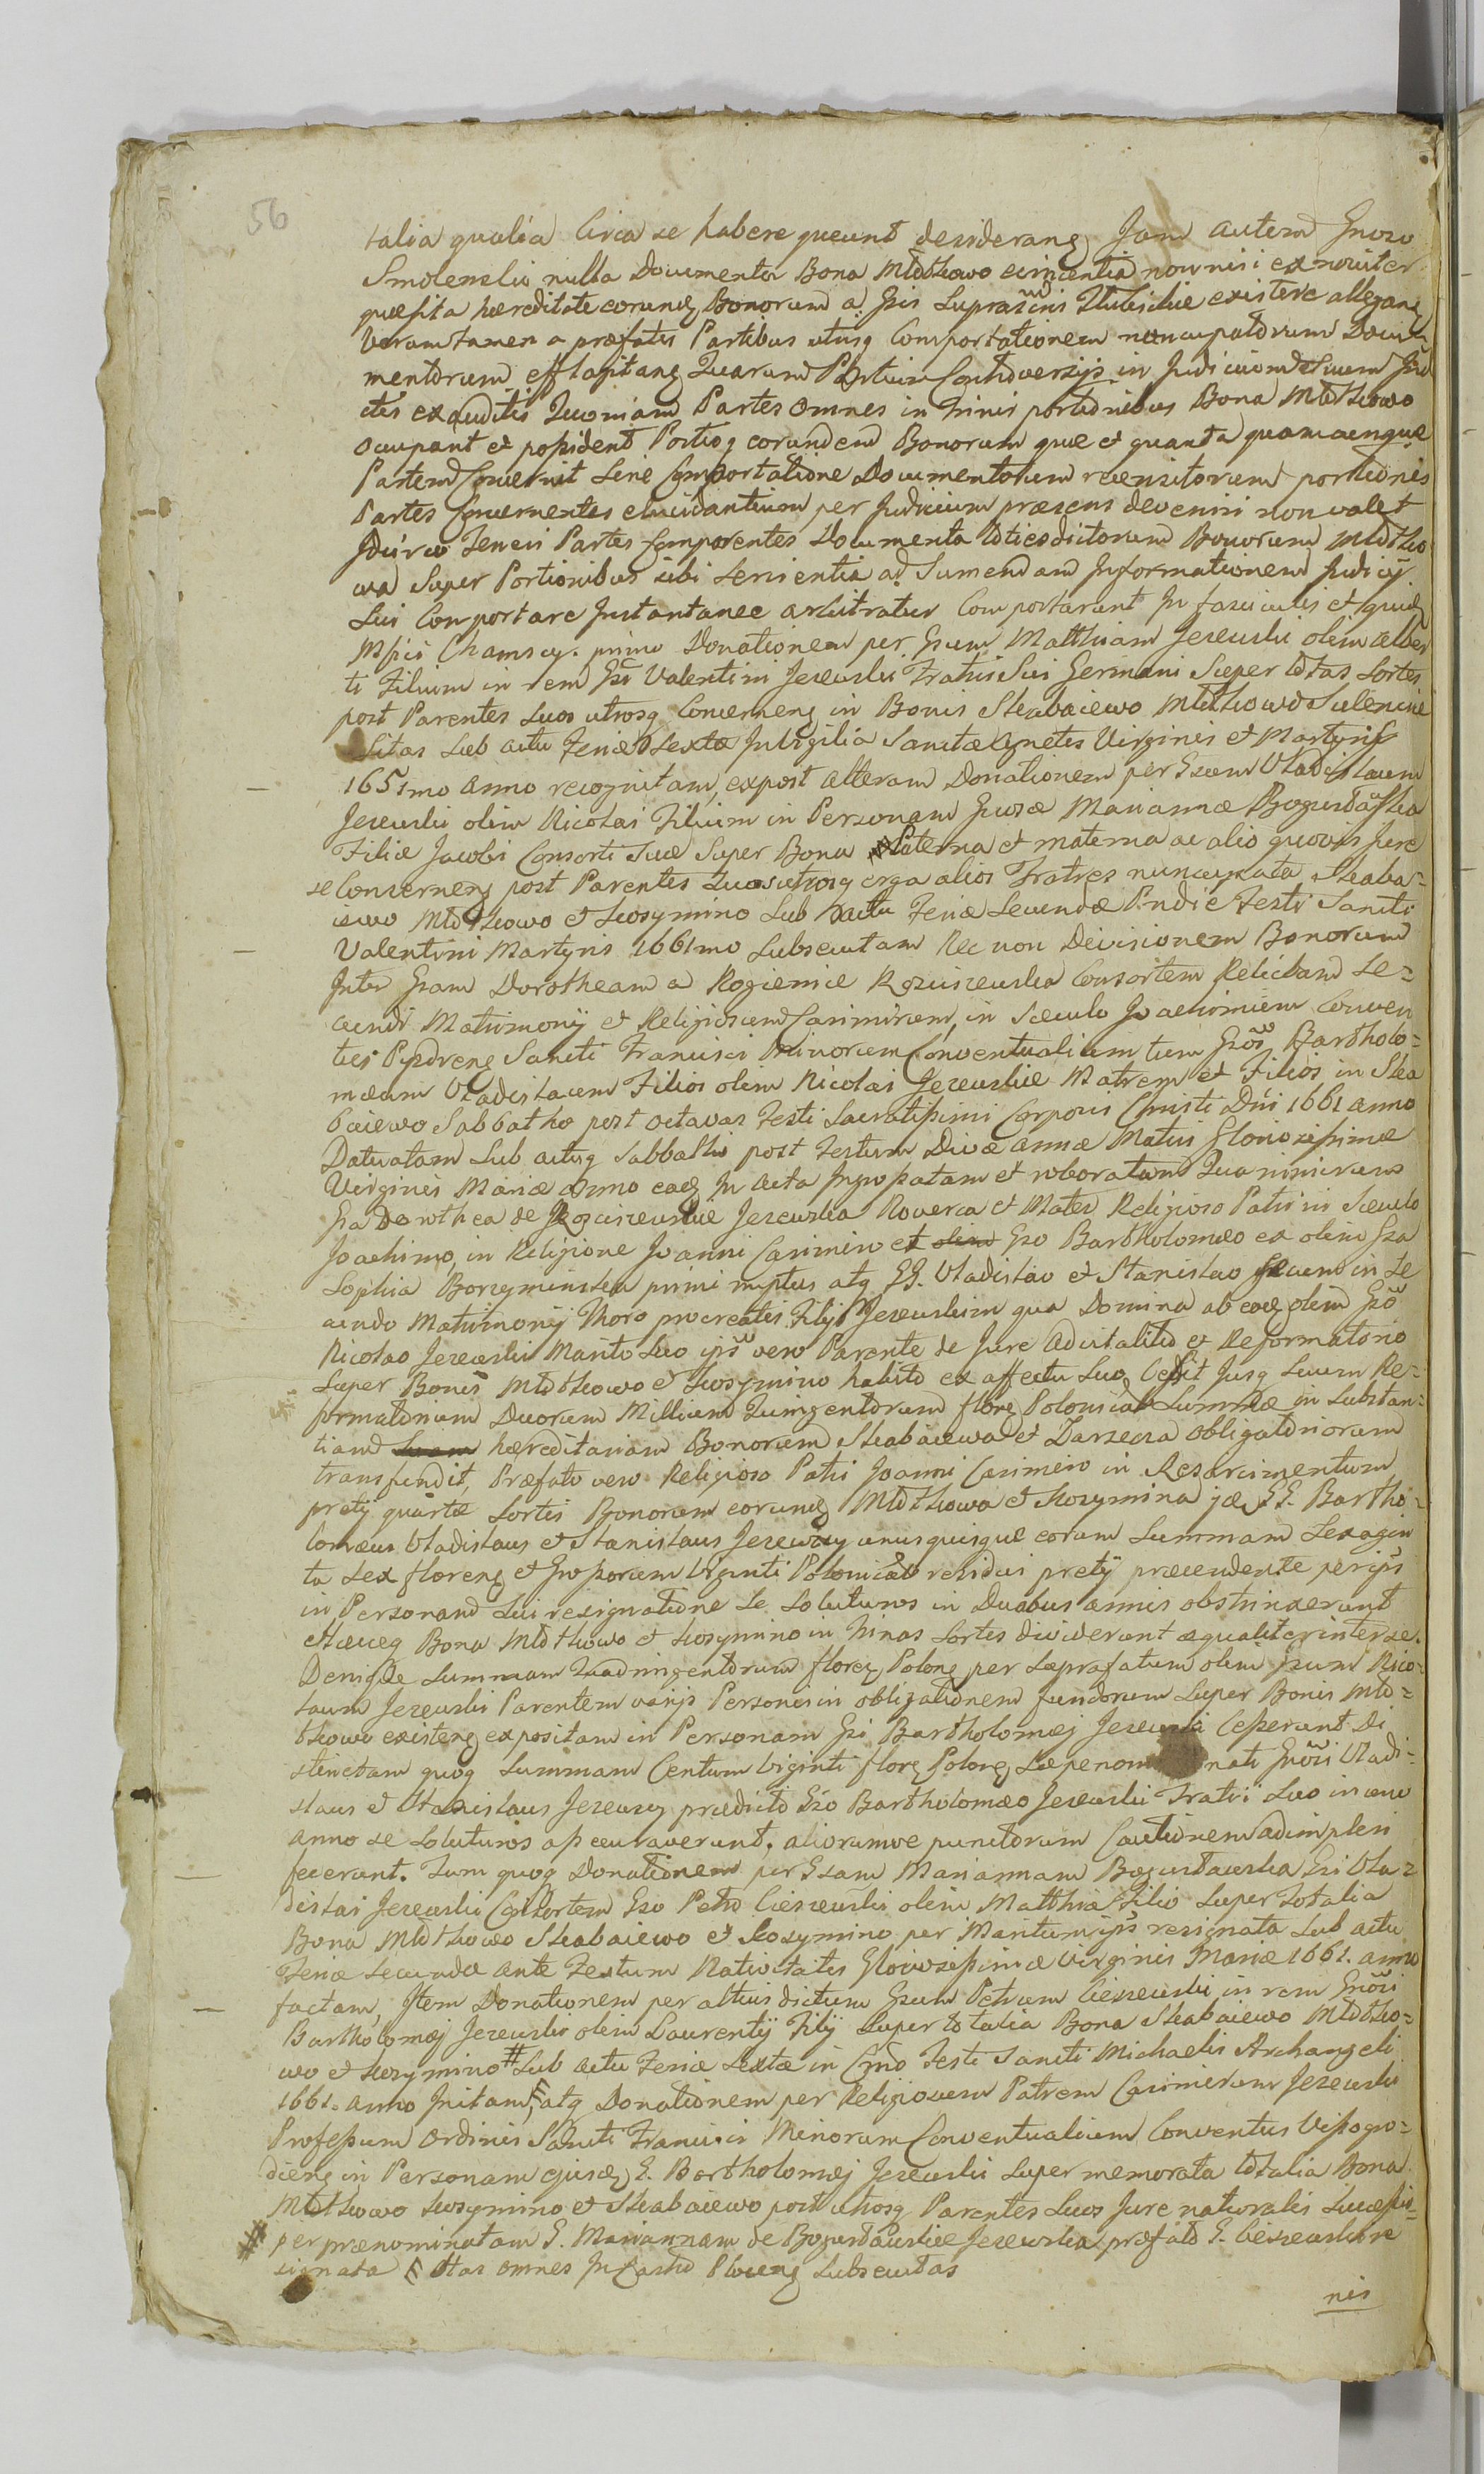 56
talia qualia Circa se habere queunt desiderang Jam autem Gnoso
Smolenski nulla Documenta Bona Młotkowo evincentia nonnisi ex noviter
quæsita hæreditate eorundq Bonorum a Gsis Suprascinis existere allegang
Verumtamen a præfatis Partibus utrisq Comportationem nuncupatorum Docu=
mentorum efflagitang Quarum Partium Controversijs in Judicium Suum
ctis exauditis Quoniam Partes omnes in trinis portionibus Bona Młotkowo
occupant et possident Portioq eorundem Bonorum quæ et quanta quamcunque
Partem Concernit Sine Comportatione Documentorum recensitorum portiones
Partes Concernentes elucidantium per Judicium præsens deveniri non valet
Idcirco Teneri Partes Comparentes Documenta totiesdictorum Bonorum Młotko
wa Super Portionibus sibi Servientia ad Sumendam Informationem Judicij
Sui Comportare Instantanee arbitratur Comportarunt In fasciculis et quidq
Mfici Chamscy. primo Donationem per Gsum Matthiam Jezewski olim Alber
ti Filium in rem Gsi Valentini Jezewski Fratris Sui Germani Super totas Sortes
post Parentes Suos utrosq Concerneng in Bonis Skabaiewo Młotkowo Sulencine
Sitas Sub actu Feriæ Sextæ In Vigilia Sanctæ Agnetis Virginis et Martyris
1651mo anno recognitam, expost alteram Donationem per Gsum Vladislaum
Jezewski olim Nicolai Filium in Personam Gnosæ Mariannæ Bogusławska
Filiæ Jacobi Consorti Suæ Super Bona Paterna et materna ac alio quovis Jure
se Concerneng post Parentes Suos utrosq erga alios Fratres nuncupata Skaba=
iewo Młotkowo et Kosymino Sub actu Feriæ Secundæ Pndie Festi Sancti
Valentini Martyris 1661mo Subsecutam Nec non Divisionem Bonorum
Inter Gsam Dorotheam a Rogienice Rosciszewska Consortem Relictam Se=
cundi Matrimonij et Religiosum Casimirum, in Sæculo Joachimum Conven
tus Pyzdreng Sancti Francisci Minorum Conventualium tum Gsos Bartholo=
mæum Vladislaum Filios olim Nicolai Jezewskie Matrem et Filios in Ska
baiewo Sabbatho post octavas Festi Sacratissimi Corporis Christi Dni 1661 anno
Datuatam Sub actuq Sabbathi post Festum Divæ Annæ Matris Gloriosissimæ
Virginis Mariæ Anno eodq In Acta Ingrossatam et roboratam Qua nimirum
Gsa Dorothea de Rosciszewskie Jezewska Noverca et Mater Religioso Patri in Sæculo
Joachimo, in Religione Joanni Casimiro et olim Gso Bartholomæo ex olim Gsa
Sophia Borzyminska primi nuptus atq GG. Vladislao et Stanislao secum in Se
cundo Matrimonij Thoro procreatis Filijs Jezewskim qua Domina ab eodq olim Gso
Nicolao Jezewski Marito Suo ipsor vero Parente de Jure advitalitio et Reformatorio
Super Bonis Młotkowo et Kosymino habito ex affectu Suo, Cessit Jusq Suum Re=
formatorium Duorum Millium Quingentorum florq Polonical Summæ in Substan=
tiam suam hæreditariam Bonorum Skabaiewa et Darzecza obligatoriorum
transfundit, Præfato vero Religioso Patri Joanni Casimiro in Resarcimentum
pretij quartæ Sortis Bonorum eorundq Młotkowa et Kosymina jdq GG. Bartho=
lomæus Vladislaus et Stanislaus Jezewscy unusquisque eorum Summam Sexagin
ta Sex floreng et Grossorum viginti Polonical residui pretij præcendente per ips
in Personam Sui resignatione Se Soluturos in Duobus annis obstrinxerunt
et Bona Młotkowo et Kosymino in trinas Sortes diviserunt æqualiter inter se.
Denique Summam Quadringentorum florq Polonq per Sæpefatum olim Gsum Nico=
laum Jezewski Parentem varijs Personis in obligationem fundorum Super Bonis Mło=
tkowo existeng expositam in Personam Gsi Bartholomæj Jezewski Cesserunt Di
stinctam quoq Summam Centum viginti florq Polonq sæpenominati Gnosi Vladi=
slaus et Stanislaus Jezewscy prædicto Gso Bartholomæo Jezewski Fratri Suo in uno
Anno se Soluturos assecuraverunt, aliorumve punctorum Cautionem adimpleri
fecerunt. Tum quoq Donationem per Gsam Mariannam Bogusławska Gsi Vla=
dislai Jezewski Consortem Gso Petro Cieszewski olim Matthiæ Filio Super Totalia
Bona Młotkowo Skabaiewo et Kosymino per Maritum ips resignata Sub actu
Feriæ Secundæ ante Festum Nativitatis Gloriosissimæ Virginis Mariæ 1661. anno
factam, Item Donationem per altius dictum Gsum Petrum Cieszewski in rem Gnosi
Bartholomæj Jezewski olim Laurentij Filij Super totalia Bona Skabaiewo Młotko=
wo et Kosymino # Sub actu Feriæ Sextæ in Crno Festi Sancti Michaelis Archangeli
1661. anno Initam, atq Donationem per Religiosum Patrem Casimirum Jezewski
Professum Ordinis Sancti Francisci Minorum Conventualium Conventus Vissogro=
dieng in Personam ejusdq G. Bartholomæj Jezewski Super memorata totalia Bona
Młotkowo Kosymino et Skabaiewo post utrosq Parentes Suos Jure naturalis
# per prænominatam G. Mariannam de Bogusławskie Jezewska præfato G. Cieszewski re
signata Has omnes In Castro Ploceng Subsecutas
nis